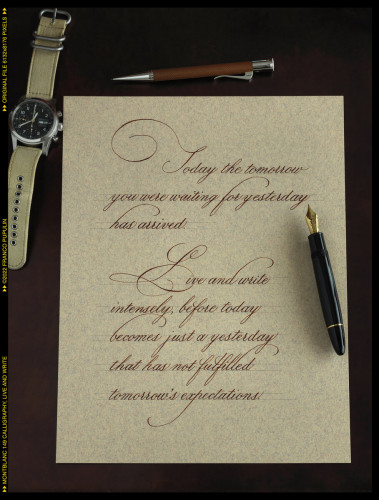 Today the tomorrow
you were waiting for yesterday
has arrived.
Live and write
intensely, before today
becomes just a yesterday
that has not fulfilled
tomorrow's expectations.
MONTBLANC 149 CALLIGRAPHY, LIVE AND WRITE
©2022 FRANCO PUPULIN
ORIGINAL FILE 6132x8176 PIXELS